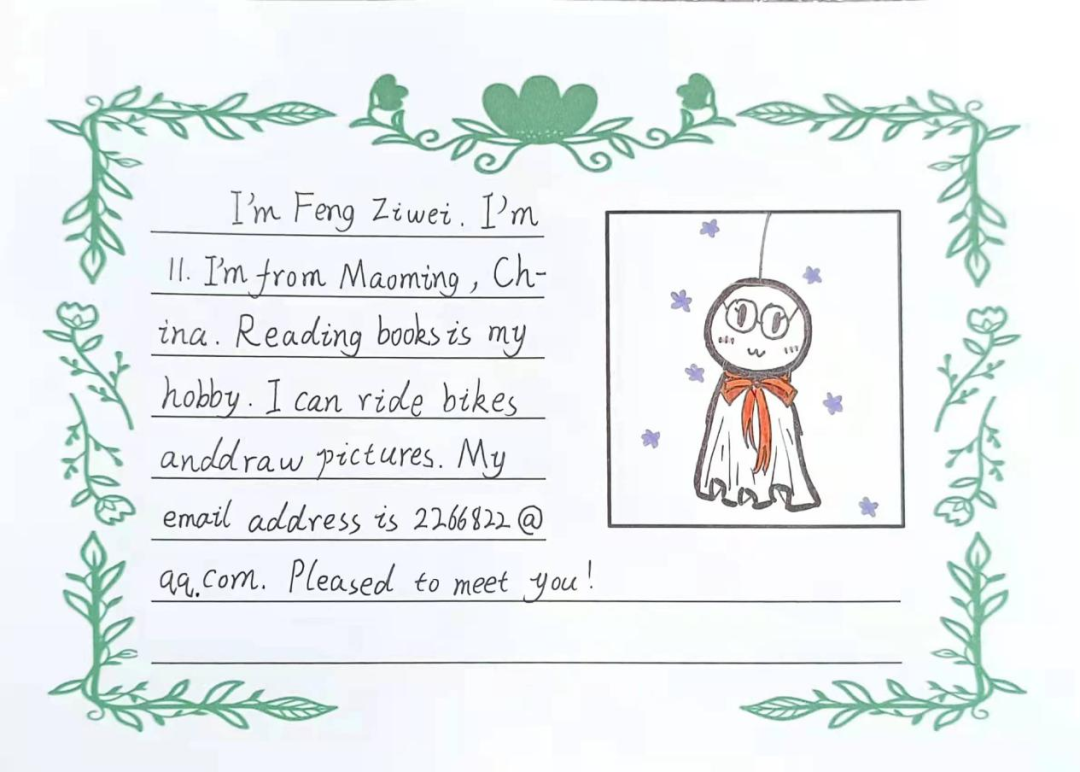 I'm Feng Ziwei. I'm
11. I'm from Maoming, Ch-
ina. Reading books is my
hobby. I can ride bikes
anddraw pictures. My
email address is 2266822@
qq.com. Pleased to meet you!